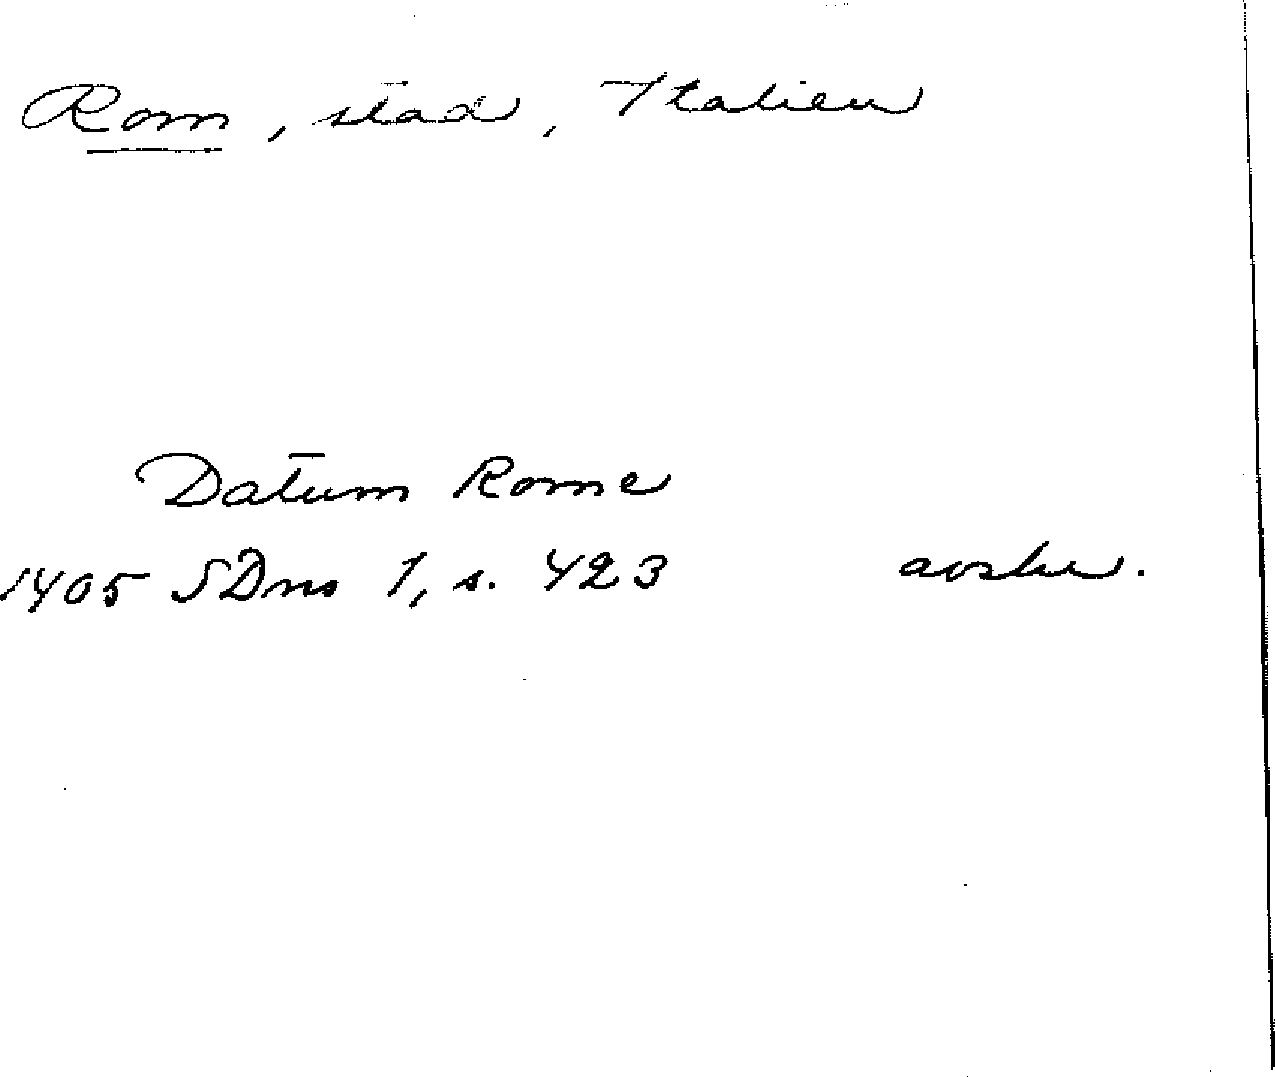 Rom, stad, Italien
Datum Rome
1405 SDns 1, s. 423 avskr.